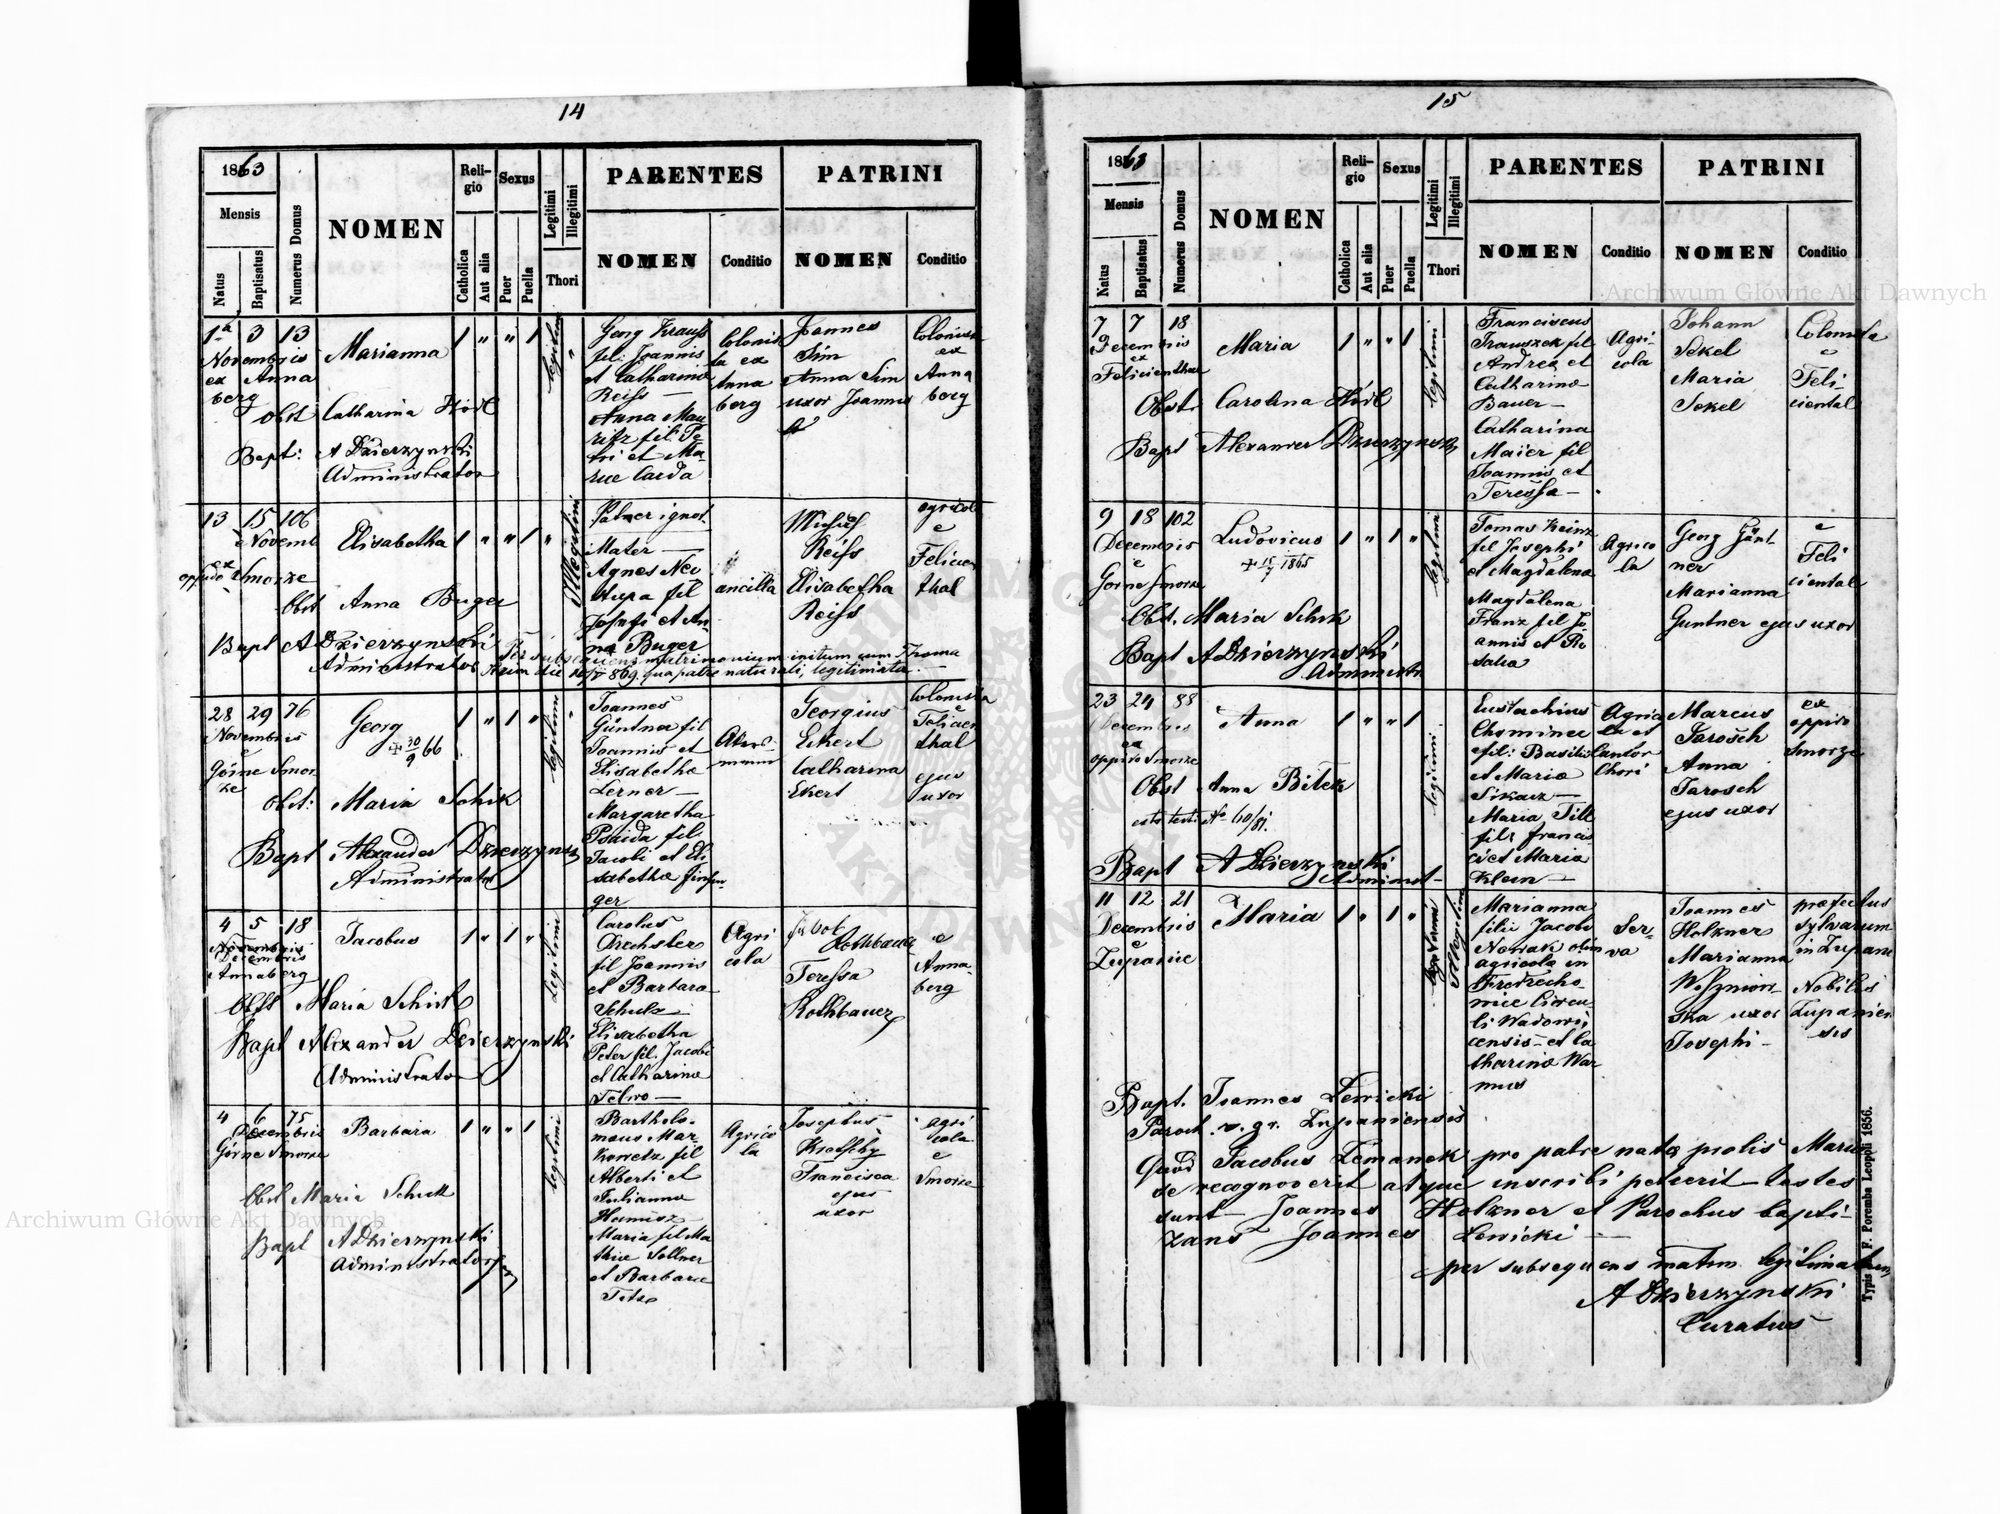 14
1863
Mensis
Natus
Baptisatus
Numerus Domus
NOMEN
Religio
Catholica
Aut alia
Sexus
Puer
Puella
Legitimi
Illegitimi
Thori
PARENTES
NOMEN
Conditio
PATRINI
NOMEN
Conditio
1a 3 13
Novembris
ex Anna
berg
Marianna
1 " " 1
legitimi
Obst Catharina Hörl
Bapt: A Dzierzynski
Administrator
Georg Krauss
fil: Joannis
et Catharina
Reiss —
Anna Mau
ritz fil: Pe
tri et Ma
riae Carda
Colonis
ta ex
Anna
berg
Joannes
Sim
Anna Sim
uxor Joannis
Colonista
ex
Anna
berg
13 15 106
Novemb
ex
oppido Smorze
Elisabetha
1 " " 1 "
Illegitimi
Obst Anna Buger
Bapt A Dzierzynski
Administrator
Pater ignot.
Mater —
Agnes
fil
Josefi et An
na Buger
ancilla
Michael
Reiss
Elisabetha
Reiss
agricola
e
Felicien
thal
Per subsequens matrimonium initum cum Thoma
die 869. qua patre naturali, legitimata. —
28 29 76
Novembris
e
Górne Smor
ze
Georg
+ 30/9 66
1 " 1 "
legitimi
Obst: Maria Schik
Bapt Alexander Dzierzynski
Administrator
Joannes
Güntner fil
Joannis et
Elisabetha
Lerner —
Margaretha
fil
Jacobi et Eli
sabetha Finsin
ger
Georgius
Eckert
Catharina
Ekert
Colonista
e
Felicien
thal
ejus
uxor
4 5 18
Novembris
Decembris
Annaberg
Jacobus
1 " 1 "
Legitimi
Obst Maria Schick
Bapt Alexander Dzierzynski
Administrator
Carolus
Drechsler
fil Joannis
et Barbara
Schulz —
Elisabetha
Peter fil. Jacobi
et Catharina
Agri
cola
Jakob
Rothbauer
Teressa
Rothbauer
e
Anna-
berg
4 6 75
Decembris
Górne Smorze
Barbara
1 " " 1
legitimi
Obst Maria Schik
Bapt A Dzierzynski
Administrator
Bartholo-
maus Mar
kowetz fil
Alberti et
Julianna
Hamisz —
Maria fil Ma
thiae Sollner
et Barbara
Tetze
Agrico
la
Josephus
Kretschy
Francisca
ejus
uxor
agri
cola
e
Smorze
15
1863
Mensis
Natus
Baptisatus
Numerus Domus
NOMEN
Religio
Catholica
Aut alia
Sexus
Puer
Puella
Legitimi
Illegitimi
Thori
PARENTES
NOMEN
Conditio
PATRINI
NOMEN
Conditio
7 7 18
Decembris
ex
Felicienthal
Maria
1 " " 1
legitimi
Obst. Carolina Hörl
Bapt Alexander Dzierzynski
Franciscus
Franszek fil
Andrea et
Catharina
Bauer —
Catharina
Maier fil
Joannis et
Teressa —
Agri-
cola
Johann
Sekel
Maria
Sekel
Colonista
e
Feli-
ciental
9 18 102
Decembris
e
Górne Smorze
Ludovicus
+ 15/7 1865
1 " 1 "
legitimi
Obst. Maria Schik
Bapt A Dzierzynski
Administr
Tomas Keinz
fil Josephi
et Magdalena
Magdalena
Franz fil Jo
annis et Ro
salia
Agrico
la
Georg Günt
ner
Marianna
Guntner ejus uxor
e
Feli
ciental
23 24 88
Decembris
ex
oppido Smorze
Anna
1 " " 1
legitimi
Obst Anna Bitcz
No 60/81.
Bapt A Dzierzynski
Administ—
Eustachius
Chominec
fil: Basilii
et Maria
Sikacz —
Maria Till
filr Francis
ci et Maria
Klein —
Agrico
la et
Cantor
Chori
Marcus
Jarosch
Anna
Jarosch
ejus uxor
ex
oppido
Smorze
11 12 21
Decembris
e
Zupanie
Maria
1 " 1 "
Legitimi
Illegitimi
Marianna
filie Jacobi
Nowak olim
agricola in
Fredrecho-
wice Circu
li Wadowi
censis — et Ca
tharina War
mus
Ser-
va
Joannes
Holzner
Marianna
Woszniow-
ska uxor
Josephi —
praefectus
sylvarum
in Zupanie
Nobilis
Zupanien
sis
Bapt. Joannes Lewicki
Paroch. r. gr. Zupaniensis
Quod Jacobus Zemanek pro patre nata prolis Maria
se recognoverit atque inscribi petierit — testes
sunt — Joannes Holzner et Parochus bapti-
zans Joannes Lewicki —
per subsequens matrim legitimatum,
A Dzierzynski
Curatus
Typis F. Poremba Leopoli 1856.
Archiwum Główne Akt Dawnych
Archiwum Główne Akt Dawnych
ARCHIWUM GŁÓWNE AKT DAWNYCH